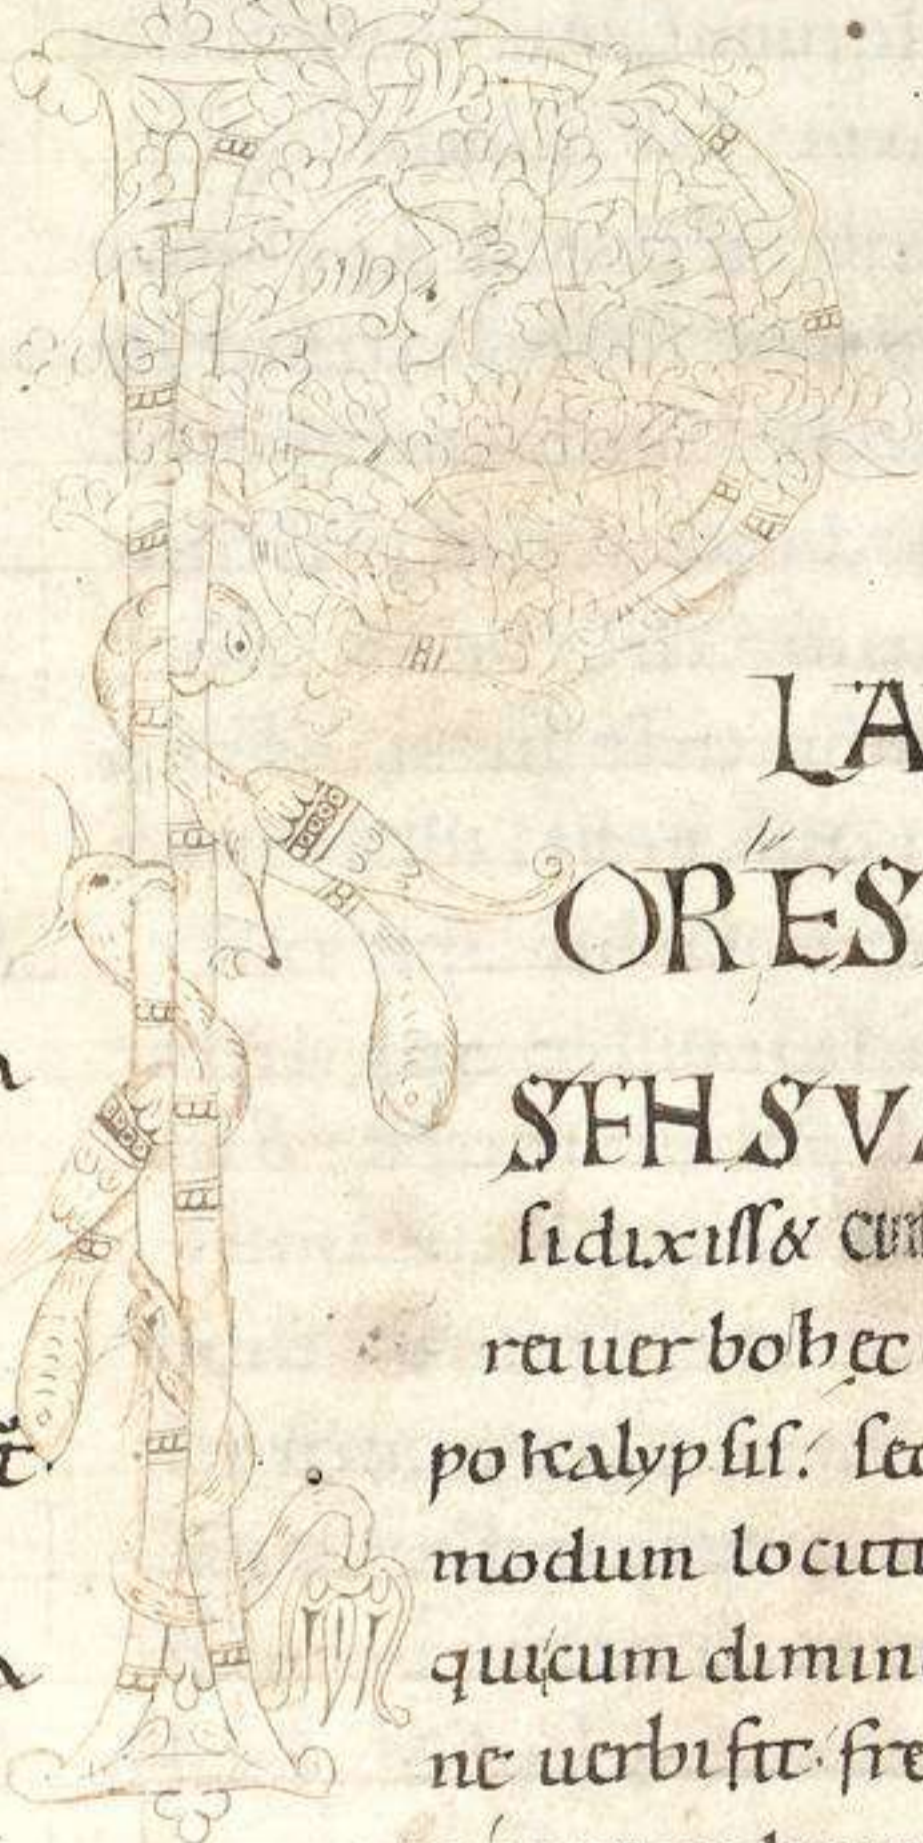 P
LA
ORES
SEH SV
ſi dixiſſ&
rei uerbo hec
pokalypſiſ. ſed
modum locutt
qui cum dimin
ne uerbi ſit. fre